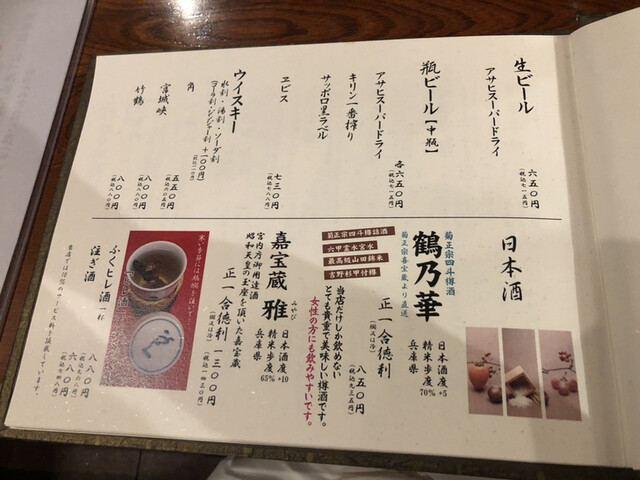 生ビール
アサヒスーパードライ
六五〇円
(税込七一五円)
瓶ビール【中瓶】
各六五〇円
(税込七一五円)
アサヒスーパードライ
キリン一番搾り
サッポロ黒ラベル
ヱビス
七三〇円
ウイスキー
水割・湯割・ソーダ割
コーラ割・ジンジャー割 +一〇〇円
角
五五〇円
(税込六〇五円)
宮城峡
八〇〇円
(税込八八〇円)
竹鶴
八〇〇円
(税込八八〇円)
日本酒
菊正宗四斗樽酒
鶴乃華
菊正宗嘉宝蔵より直送
日本酒度 +5
精米歩度 70%
兵庫県
正一合徳利
(燗又は冷)
八五〇円
(税込九三五円)
菊正宗四斗樽詰酒
六甲霊水宮水
最高級山田錦米
吉野杉甲付樽
当店だけしか飲めない
とても貴重で美味しい樽酒です。
女性の方にも飲みやすいです。
嘉宝蔵 雅
みやび
日本酒度 +10
精米歩度 65%
兵庫県
宮内庁御用達酒
昭和天皇の玉座を頂いた嘉宝蔵
正一合徳利
(燗又は冷)
一三〇〇円
(税込一四三〇円)
ふくヒレ酒 一杯
八八〇円
(税込九六八円)
注ぎ酒
六八〇円
(税込七四八円)